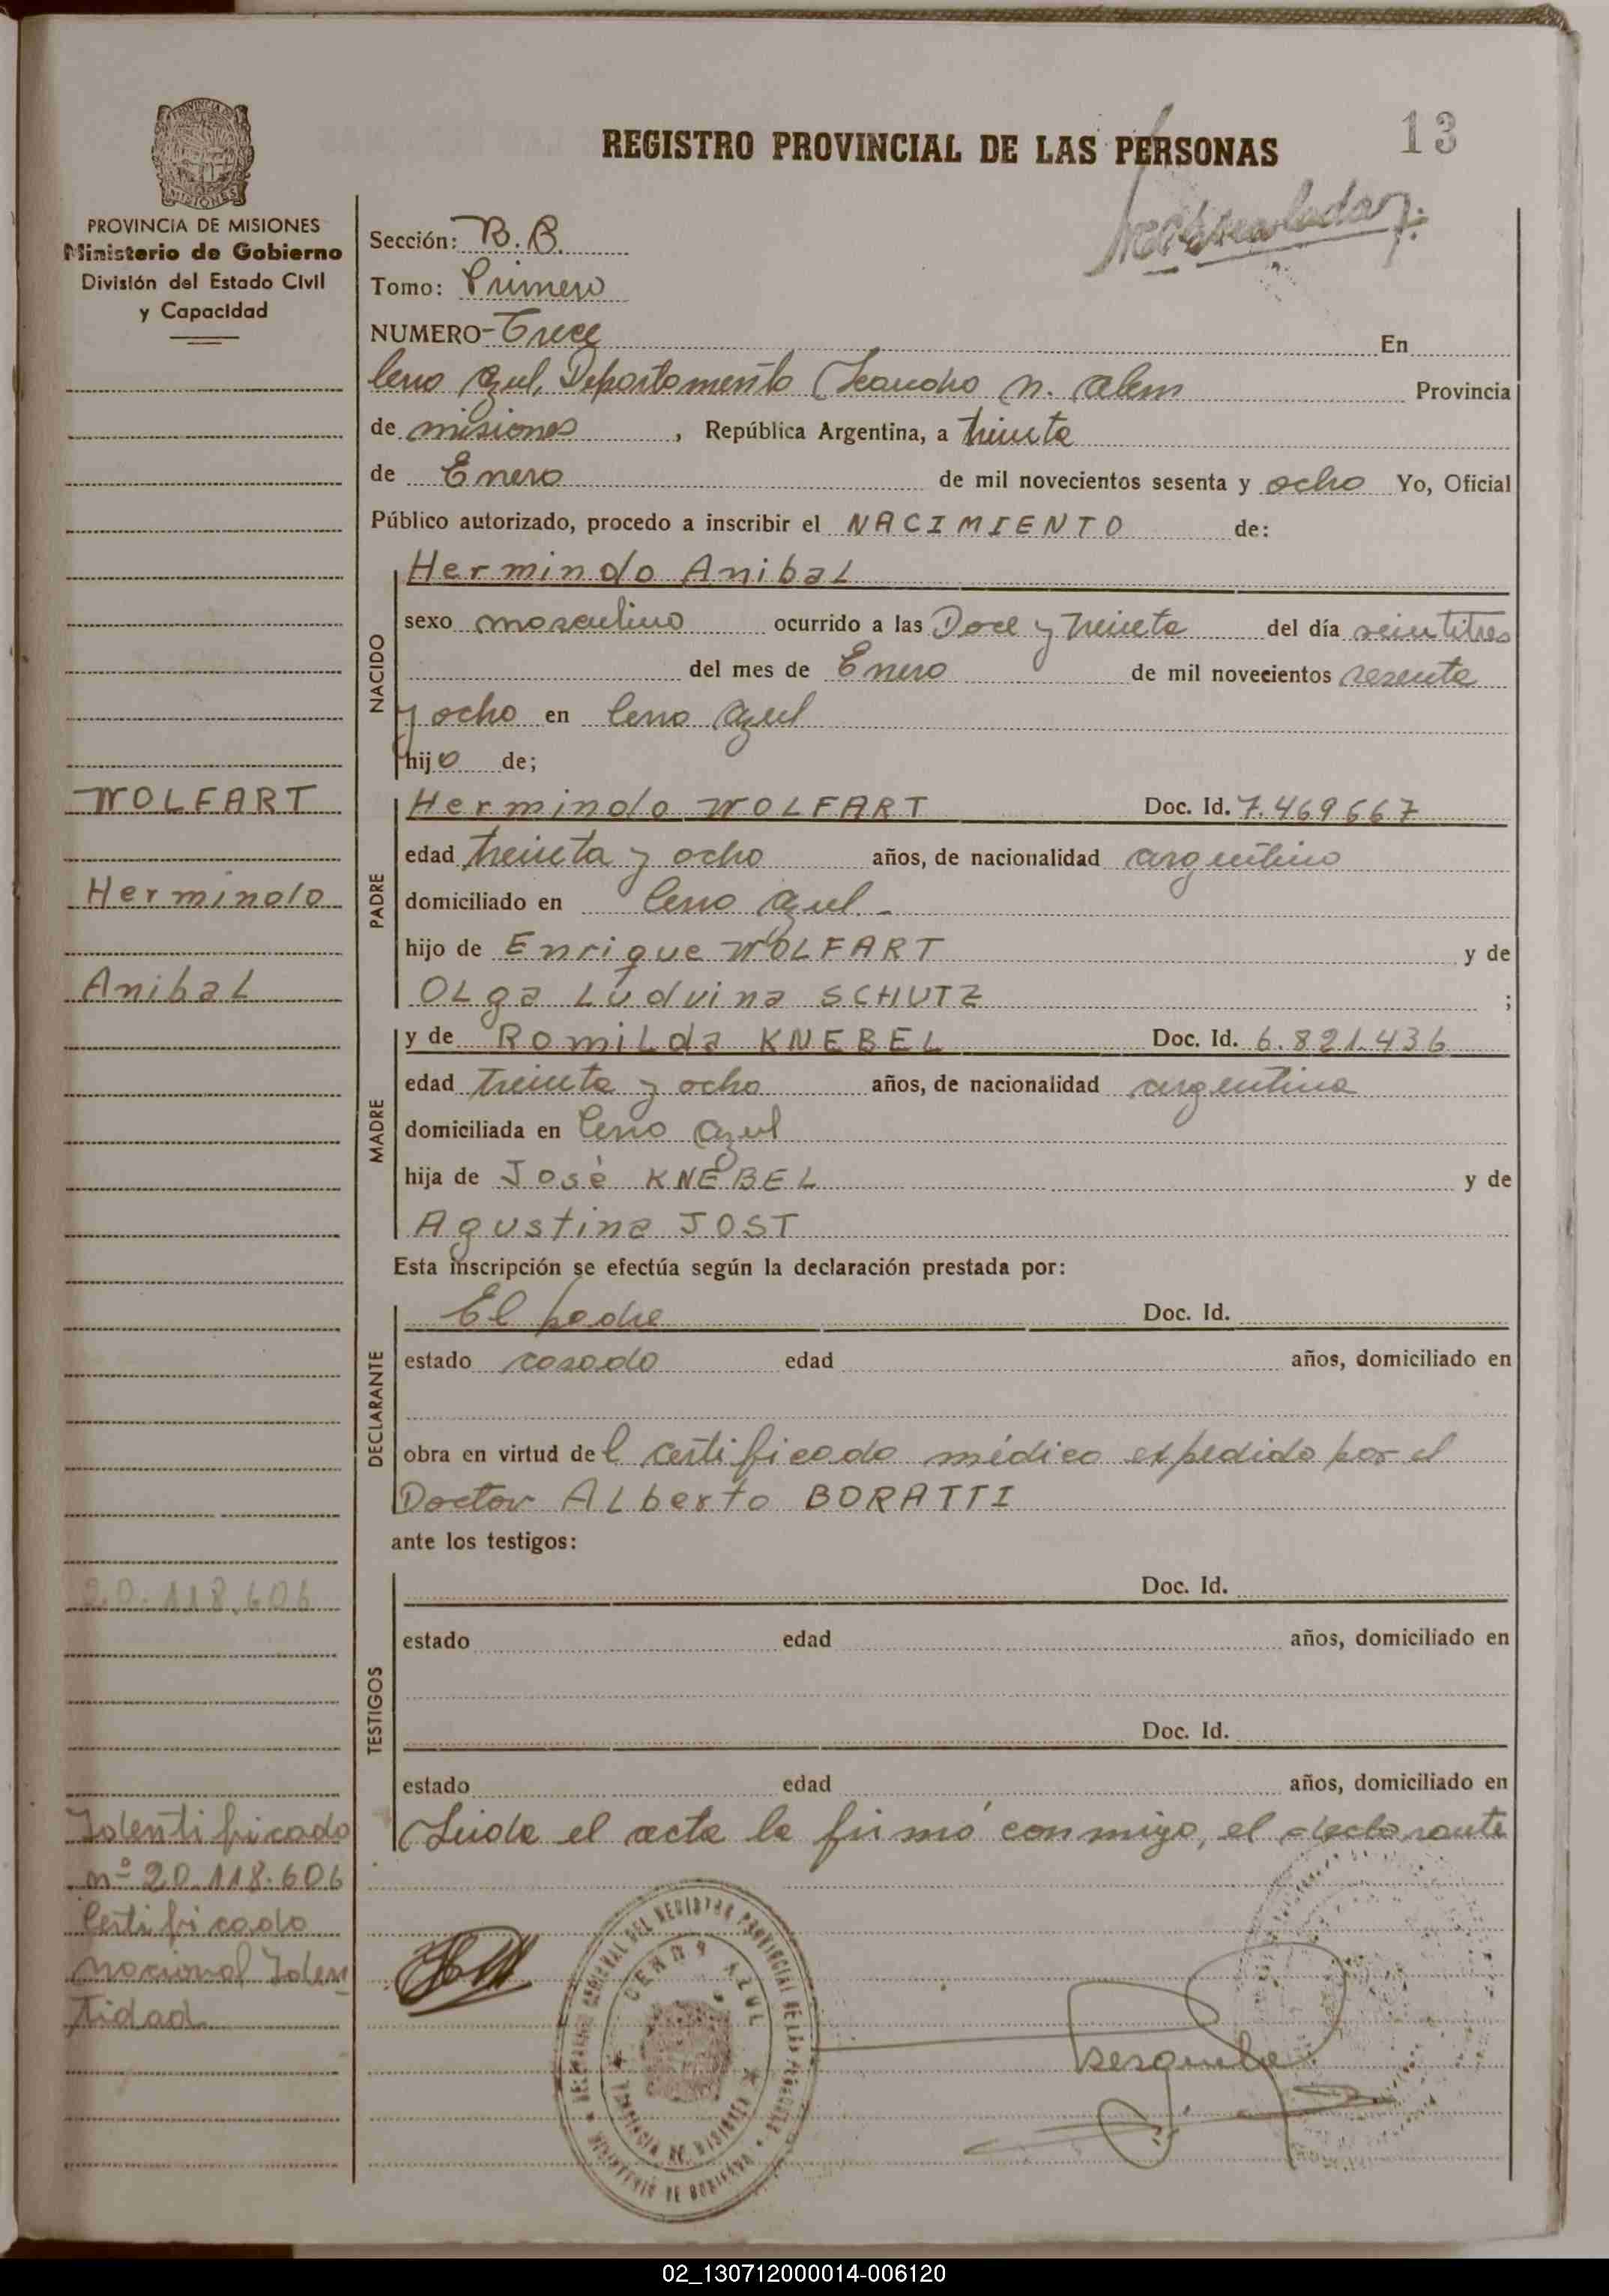 REGISTRO PROVINCIAL DE LAS PERSONAS
13
PROVINCIA DE MISIONES
Ministerio de Gobierno
División del Estado Civil
y Capacidad
Sección: B.B.
Tomo: Primero
NUMERO- Trece En
Cerro Azul, Departamento Leandro N. Alem Provincia
de misiones, República Argentina, a treinta
de Enero de mil novecientos sesenta y ocho Yo, Oficial
Público autorizado, procedo a inscribir el NACIMIENTO de:
NACIDO
Hermindo Anibal
sexo masculino ocurrido a las Doce y treinta del día veintitres
del mes de Enero de mil novecientos sesenta
y ocho en Cerro Azul
hijo de;
WOLFART
Hermindo
Anibal
PADRE
Hermindo WOLFART Doc. Id. 7.469667
edad treinta y ocho años, de nacionalidad argentino
domiciliado en Cerro Azul.-
hijo de Enrique WOLFART y de
OLga Ludvina SCHUTZ ;
MADRE
y de RomiLda KNEBEL Doc. Id. 6.821.436
edad treinta y ocho años, de nacionalidad argentina
domiciliada en Cerro Azul
hija de José KNEBEL y de
Agustina JOST
Esta inscripción se efectúa según la declaración prestada por:
DECLARANTE
El padre Doc. Id.
estado casado edad años, domiciliado en
obra en virtud del certificado médico expedido por el
Doctor ALberto BORATTI
ante los testigos:
20.118.606
TESTIGOS
Doc. Id.
estado edad años, domiciliado en
Doc. Id.
estado edad años, domiciliado en
Leida el acta la firmó conmigo, el declarante
Identificado
nº 20.118.606
Certificado
nacional Iden
tidad
CERRO AZUL
PROVINCIA DE MISIONES
MINISTERIO DE GOBIERNO
02_130712000014-006120